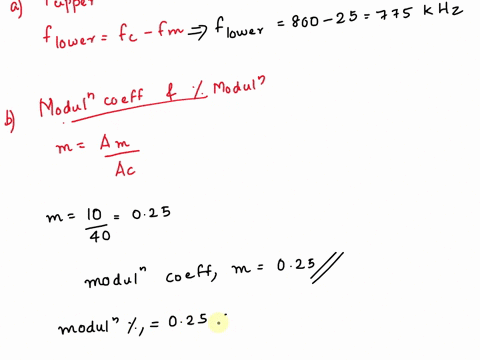 a) f upper
f lower = fc - fm ⇒ f lower = 800 - 25 = 775 kHz
b) Modulⁿ coeff & % Modulⁿ
m = Am / Ac
m = 10 / 40 = 0.25
modulⁿ coeff, m = 0.25 //
modulⁿ %, = 0.25